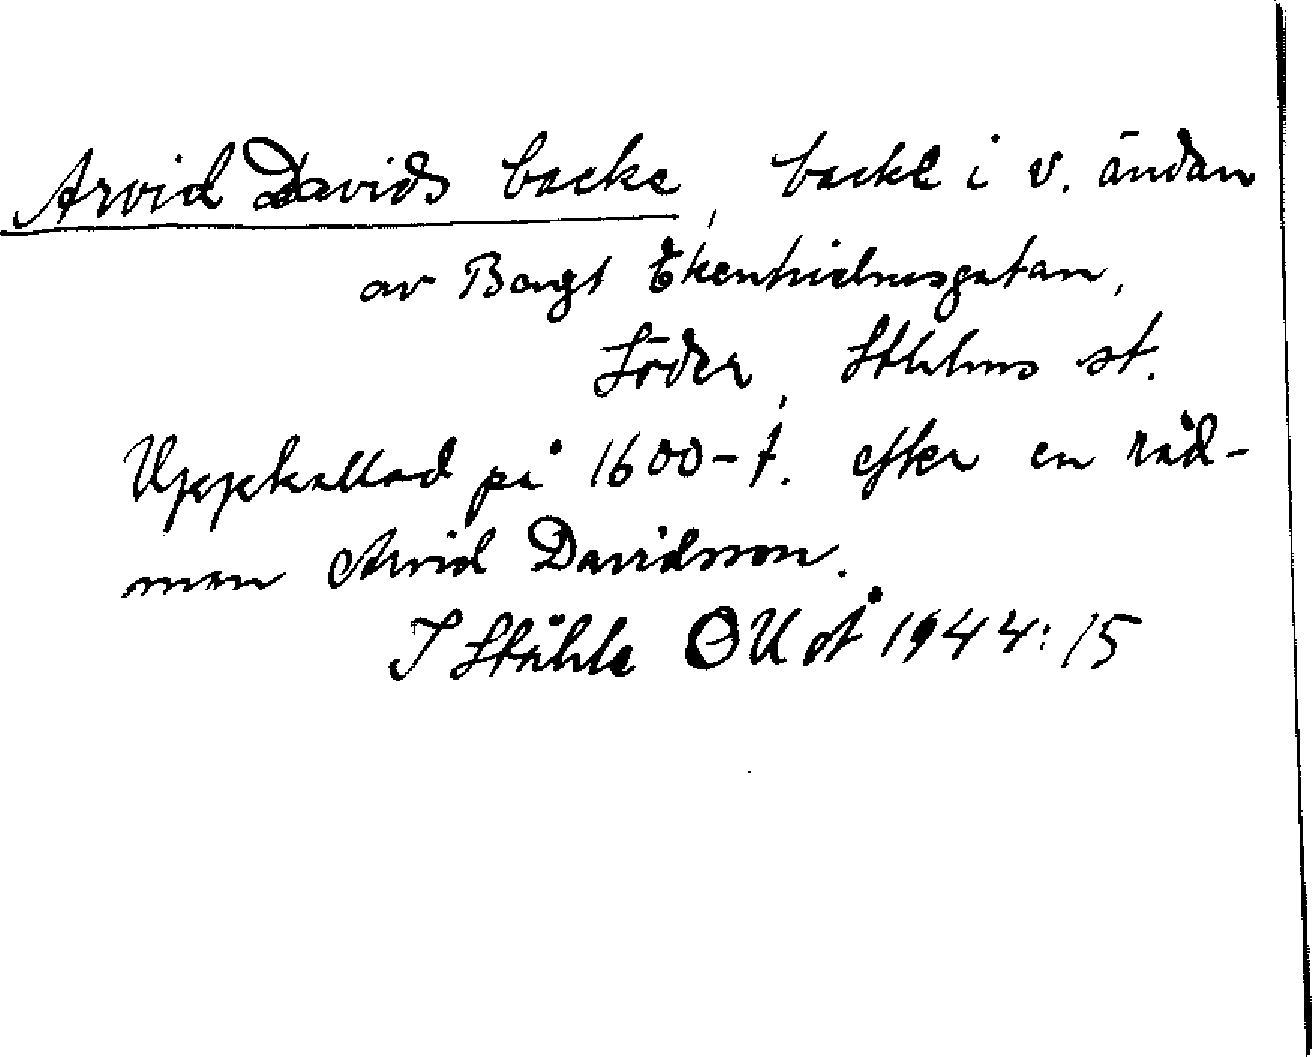 Arvid Davids backe, backe i v. ändan
av Bengt Ekenhielmsgatan,
Söder, Sthlms st.
Uppkallad på 1600-t. efter en råd-
man Arvid Davidsson.
I Ståhle OUÅ 1944: 15